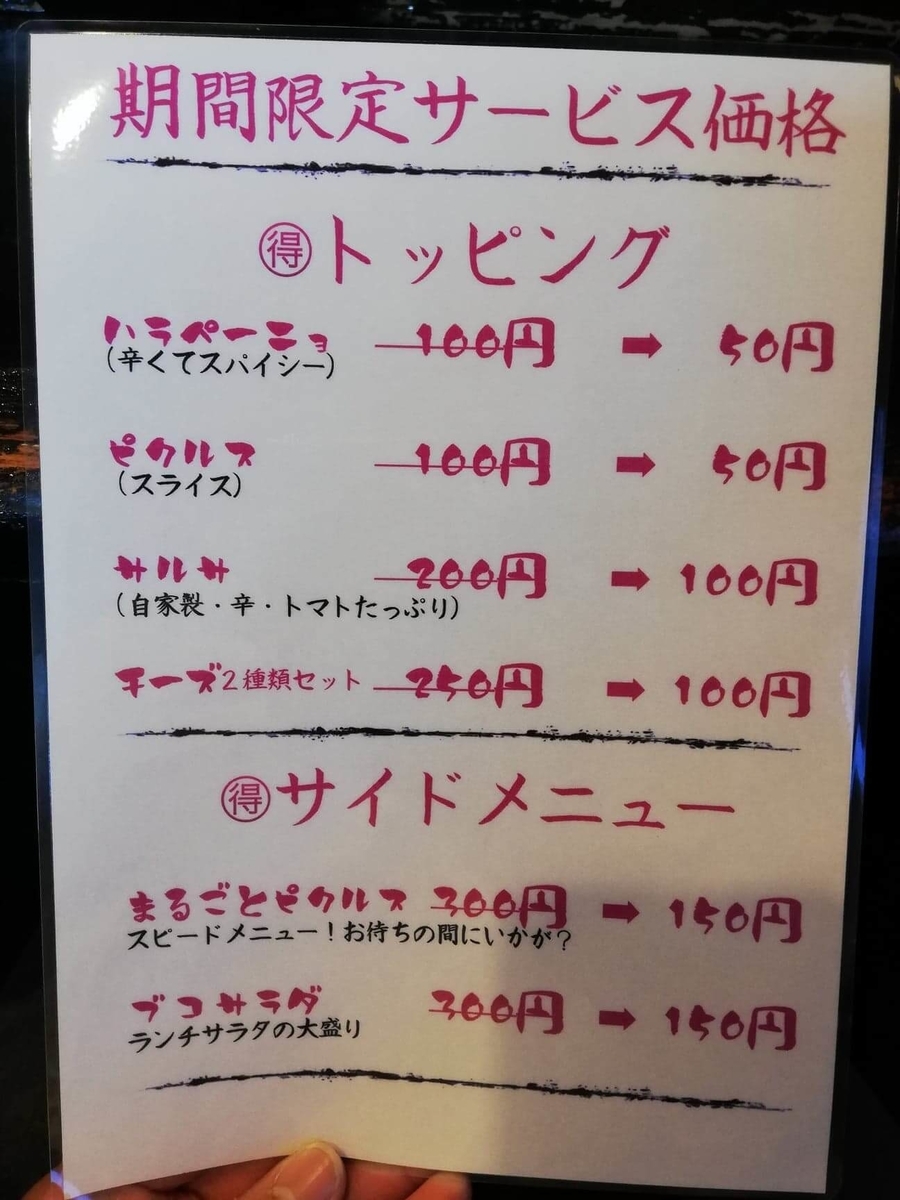 期間限定サービス価格
㊝トッピング
ハラペーニョ 100円 ➡ 50円
(辛くてスパイシー)
ピクルス 100円 ➡ 50円
(スライス)
サルサ 200円 ➡ 100円
(自家製・辛・トマトたっぷり)
チーズ2種類セット 250円 ➡ 100円
㊝サイドメニュー
まるごとピクルス 300円 ➡ 150円
スピードメニュー!お待ちの間にいかが?
ブコサラダ 300円 ➡ 150円
ランチサラダの大盛り